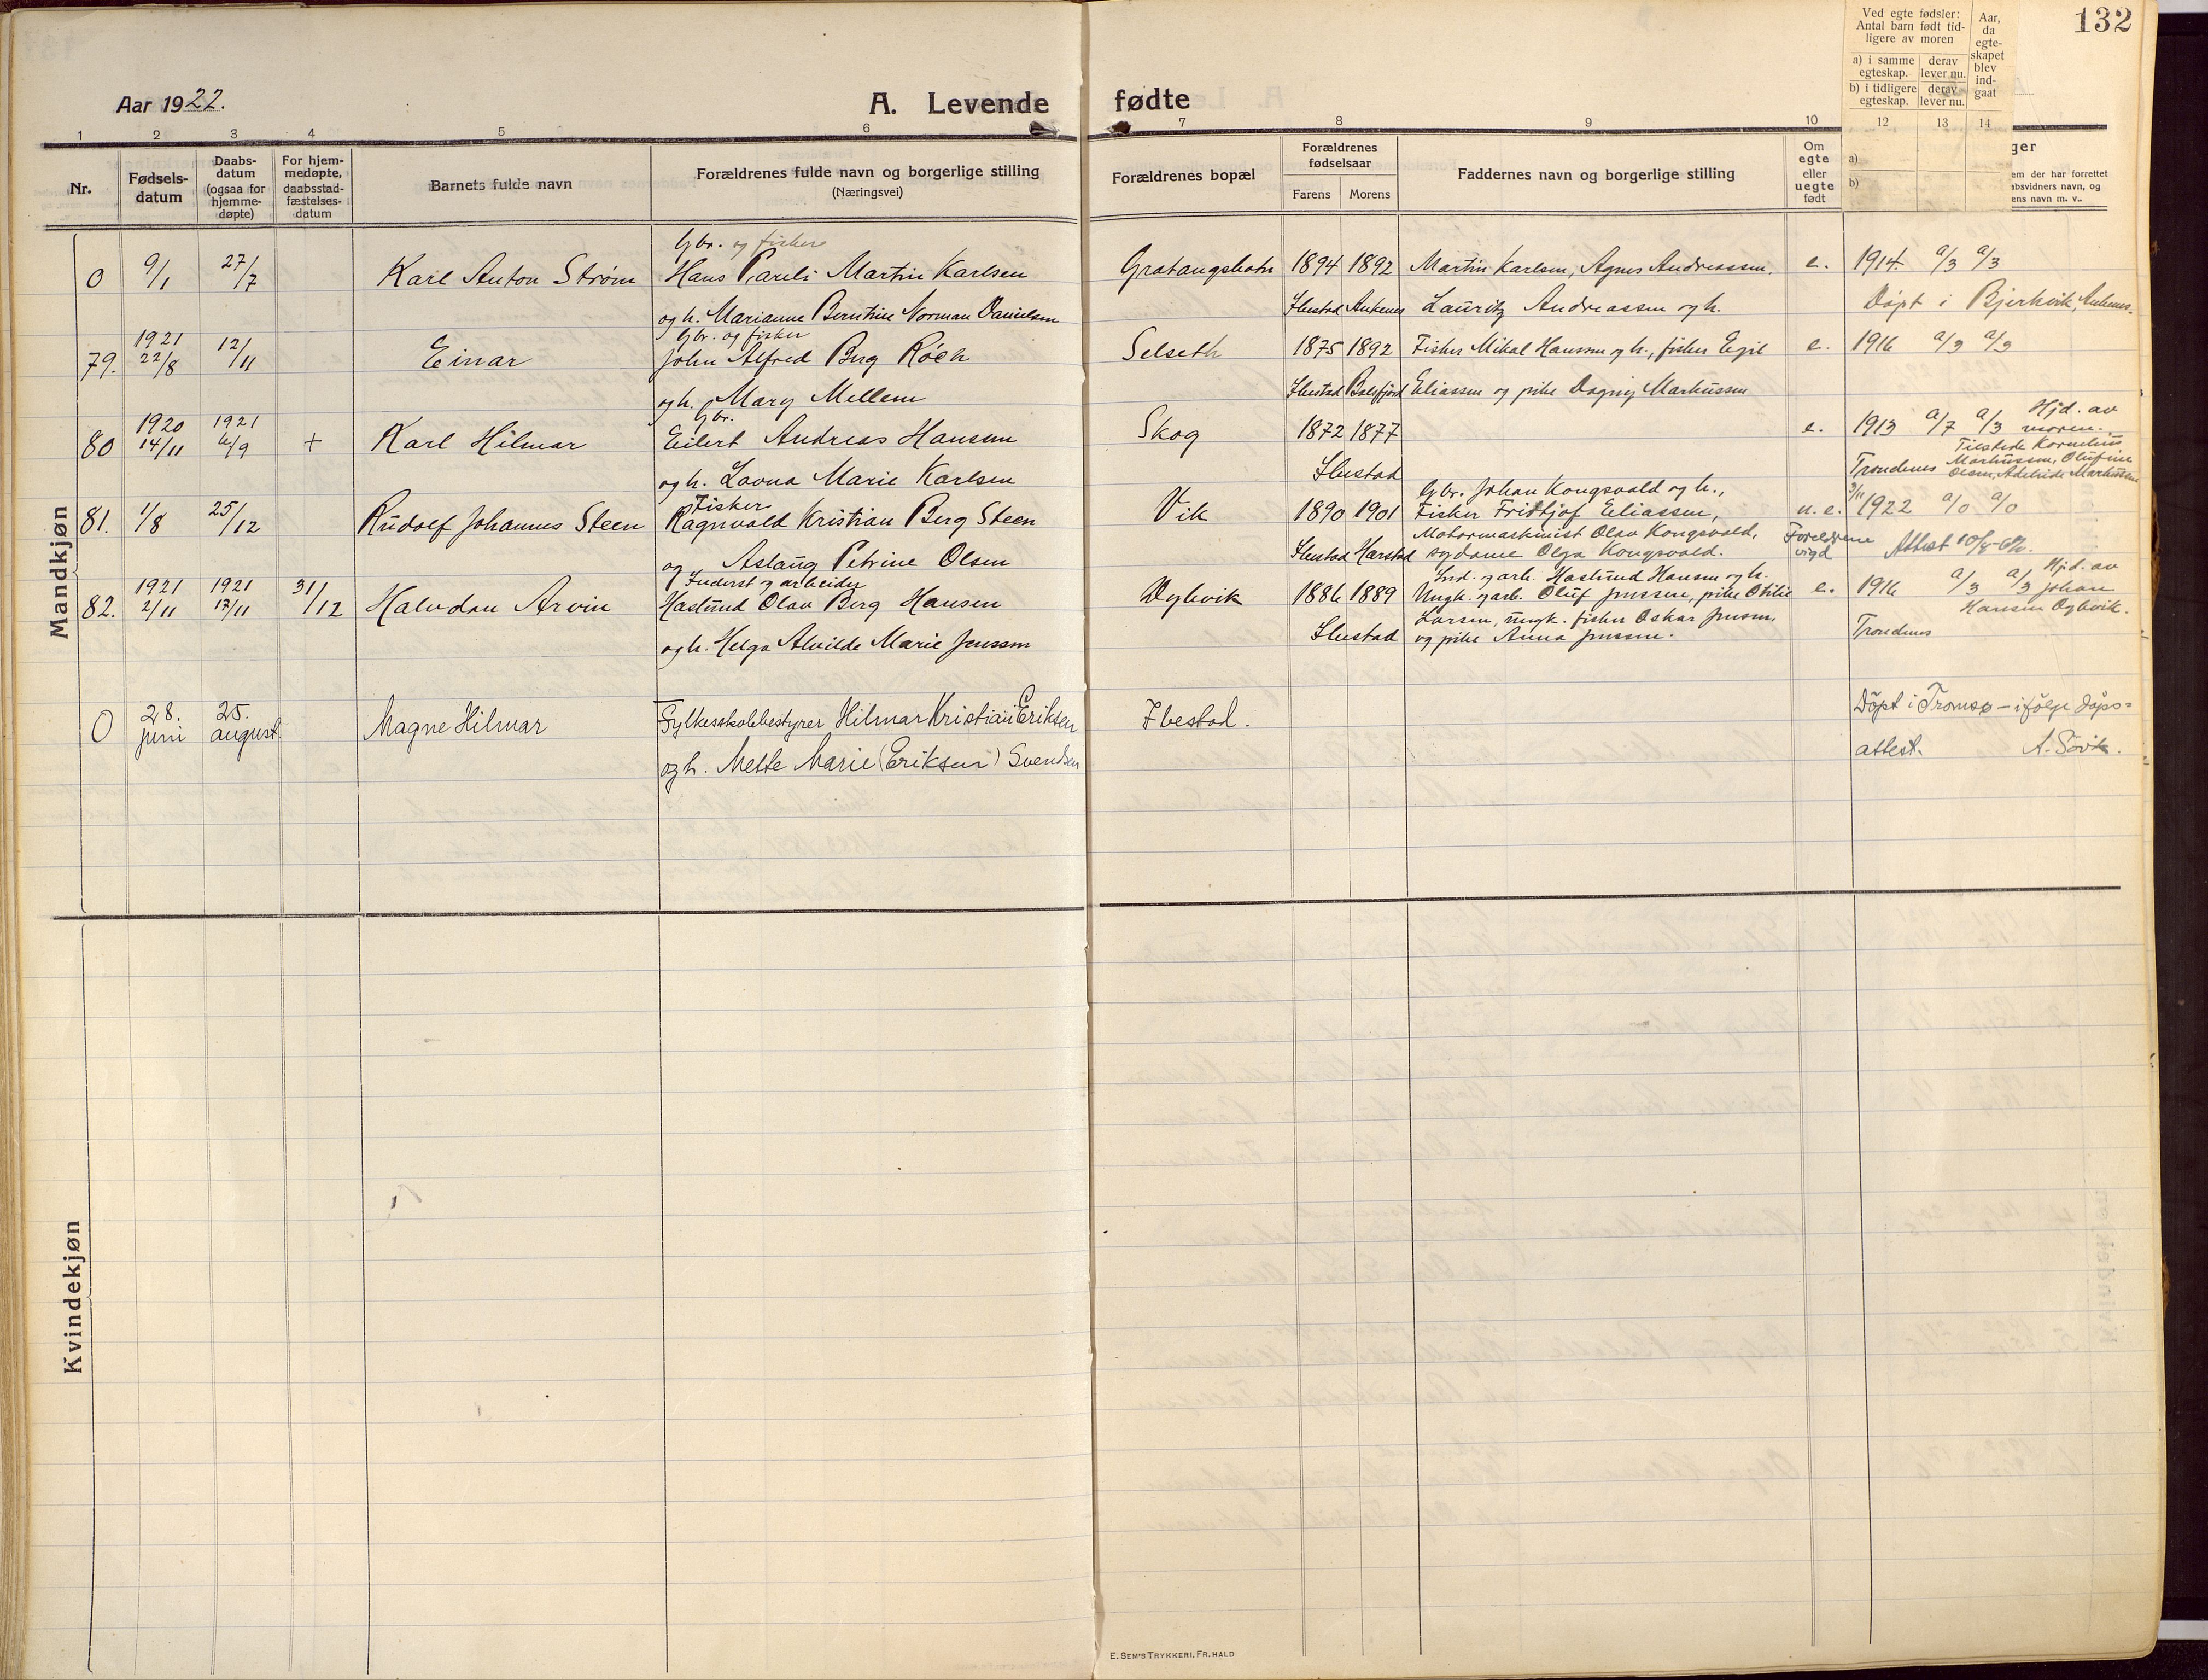 132
Ved egte fødsler:
Antal barn født tid-
ligere av moren
a) i samme egteskap. derav lever nu.
b) i tidligere egteskap. derav lever nu.
Aar, da egte-
skapet blev ind-
gaat
Aar 1922.
A. Levende fødte
1 2 3 4 5 6 7 8 9 10 12 13 14
Nr.
Fødsels-
datum
Daabs-
datum
(ogsaa for
hjemme-
døpte)
For hjem-
medøpte,
daabsstad-
fæstelses-
datum
Barnets fulde navn
Forældrenes fulde navn og borgerlige stilling
(Næringsvei)
Forældrenes bopæl
Forældrenes
fødselsaar
Farens Morens
Faddernes navn og borgerlige stilling
Om
egte
eller
uegte
født
a)
b)
ger
em der har forrettet
absvidners navn, og
ens navn m. v..
Mandkjøn
Gbr. og fisker
0 9/1 27/7 Karl Anton Strøm Hans Pareli Martin Karlsen Gratangsbotn 1894 1892 Martin Karlsen, Agnes Andreassen, e. 1914. a/3 a/3
og h. Marianne Berntine Norman Danielsen Ibestad Ankenes Lauritz Andreassen og h. Döpt i Bjerkvik, Ankenes.
1921 Gbr. og fisker
79. 22/8 12/11 Einar John Alfred Berg Röch Selseth 1875 1892 Fisker Mikal Hansen og h., fisker Egil e. 1916 a/3 a/3
og h. Mary Mellem Ibestad Balsfjord Eliassen og pike Dagny Markussen
1920 1921 Gbr. Hjd. av
80 14/11 6/9 + Karl Hilmar Eilert Andreas Hansen Skog 1872 1877 e. 1913 a/7 a/3 moren.
Tilstede Kornelius
Markussen, Olufine
og h. Lovna Marie Karlsen Ibestad Trondenes Olsen, Adeleide Markussen
Fisker Gbr. Johan Kongsvold og h., 9/11
81. 1/8 25/12 Rudolf Johannes Steen Ragnvald Kristian Berg Steen Vik 1890 1901 Fisker Fridtjof Eliassen, u.e. 1922 a/0 a/0
Motormaskinist Olav Kongsvold,
og Aslaug Petrine Olsen Ibestad Harstad sydame Olga Kongsvold. Foreldrene vigd Attest
1921 1921 Inderst og arbeider Ind. og arb. Haslund Hansen og h. Hjd. av
82. 2/11 17/11 31/12 Halvdan Arvin Haslund Olav Berg Hansen Dybvik 1886 1889 Ungk. og arb. Oluf Jenssen, pike Otilie e. 1916 a/3 a/3 Johan
Hansen Dybvik.
og h. Helga Alvilde Marie Jenssen Ibestad Larsen, ungk. fisker Oskar Jenssen, og pike Anna Jenssen. Trondenes
0 28. juni 25. august Magne Hilmar Fylkesskolebestyrer Hilmar Kristian Eriksen Ibestad. Döpt i Tromsø – ifölge döps=
og h. Mette Marie (Eriksen) Svendsen attest. A. Sövik.
Kvindekjøn
E. SEM'S TRYKKERI, FR.HALD